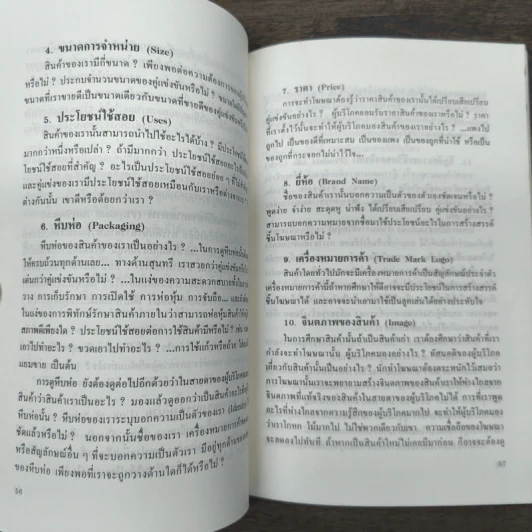 4. ขนาดการจำหน่าย (Size)
สินค้าของเรามีกี่ขนาด ? เพียงพอต่อความต้องการของผู้
หรือไม่ ? ประกบจำนวนขนาดของคู่แข่งขันหรือไม่ ?
ขนาดที่เราขายดีเป็นขนาดเดียวกับขนาดที่ขายดีของคู่แข่งขัน
5. ประโยชน์ใช้สอย (Uses)
สินค้าของเรานั้นสามารถนำไปใช้อะไรได้บ้าง ? มีประโยชน์
มากกว่าหนึ่งหรือเปล่า ? ถ้ามีมากกว่า ประโยชน์ใช้สอยอะไร
โยชน์ใช้สอยที่สำคัญ ? อะไรเป็นประโยชน์ใช้สอยย่อย ๆ ที่
และคู่แข่งของเรามีประโยชน์ใช้สอยเหมือนกับเราหรือต่าง
ต่างกันนั้น เขาดีหรือด้อยกว่าเรา ?
6. หีบห่อ (Packaging)
หีบห่อของสินค้าของเราเป็นอย่างไร ? ...ในการดูหีบห่อนั้น
ให้ครบถ้วนทุกด้านเลย... ทางด้านสุนทรี เราสวยกว่าคู่แข่งขัน
เด่นกว่าคู่แข่งขันหรือไม่ ? ...ในแง่ของความสะดวกสบาย
วาง การเก็บรักษา การเปิดใช้ การห่อหุ้ม การจับถือ...
ในแง่ของการพิทักษ์รักษาสินค้าภายในว่าสามารถห่อหุ้มสินค้า
สภาพดีเพียงใด ? ประโยชน์ใช้สอยต่อการใช้สินค้ามีหรือไม่ ?
เอาไปทำอะไร ? ขวดเอาไปทำอะไร ? ...การใช้แก้วหรือถ้วย
แยมขาย เป็นต้น
การดูหีบห่อ ยังต้องดูต่อไปอีกด้วยว่าในสายตาของผู้บริโภค
สินค้าว่าสินค้าเราเป็นอะไร ? มองแล้วดูออกว่าเป็นสินค้าอะไร
หีบห่อนั้น ? หีบห่อของเราระบุบอกความเป็นตัวของเรา
ชัดแล้วหรือไม่ ? นอกจากนั้นชื่อของเรา เครื่องหมายการค้า
หรือสัญลักษณ์อื่น ๆ ที่จะบอกความเป็นตัวเรา มีอยู่ทุกด้าน
ของหีบห่อ เพียงพอที่เราจะถูกวางด้านใดก็ได้หรือไม่ ?
56
7. ราคา (Price)
การจะทำโฆษณาต้องรู้ว่าราคาสินค้าของเรานั้นได้เปรียบเสียเปรียบ
คู่แข่งขันอย่างไร ? ผู้บริโภคยอมรับราคาสินค้าของเราหรือไม่ ? ราคา
ที่เราตั้งไว้นั้นจะทำให้ผู้บริโภคมองของเราอย่างไร ? ...แพงไป
ถูกไป เป็นของดีที่เหมาะสม เป็นของแพง เป็นของถูกที่น่าใช้ หรือเป็น
ของถูกที่กระจอกไม่น่าไว้ใจ...
8. ยี่ห้อ (Brand Name)
ชื่อของสินค้าของเรานั้นบอกความเป็นตัวของตัวเองชัดเจนหรือไม่ ?
พูดง่าย จำง่าย สะดุดหู น่าฟัง ได้เปรียบเสียเปรียบ คู่แข่งขันอย่างไร ?
สามารถบอกความหมายจากชื่อมาใช้ประโยชน์อะไรในการสร้างสรรค์
ชิ้นโฆษณาหรือไม่ ?
9. เครื่องหมายการค้า (Trade Mark Logo)
สินค้าใดทั่วไปมักจะมีเครื่องหมายการค้าเป็นสัญลักษณ์ประจำตัว
เครื่องหมายการค้านี้ถ้าหากศึกษาให้ดีอาจจะมีประโยชน์ในการสร้างสรรค์
ชิ้นโฆษณาได้ และอาจจะนำเอามาใช้เป็นลูกเล่นได้อย่างประทับใจ
10. จินตภาพของสินค้า (Image)
ในการศึกษาสินค้านั้น ถ้าเป็นสินค้าเก่า เราต้องศึกษาว่าสินค้าที่เรา
กำลังจะทำโฆษณานั้น ผู้บริโภคมองอย่างไร ? ทัศนคติของผู้บริโภค
เกี่ยวกับสินค้านั้นเป็นอย่างไร ? นักทำโฆษณาต้องตระหนักไว้เสมอว่า
การโฆษณานั้นเราจะพยายามสร้างจินตภาพของสินค้าเราให้ห่างไกลจาก
จินตภาพที่แท้จริงของสินค้าในสายตาของผู้บริโภคไม่ได้ การที่เราพูด
อะไรที่ห่างไกลจากความรู้สึกของผู้บริโภคมากไป จะทำให้ผู้บริโภคมอง
ว่าเราโกหก โม้มากไป ไม่ใช่พวกเดียวกับเขา ความเชื่อถือของโฆษณา
จะลดลงไปทันที ถ้าหากเป็นสินค้าใหม่ไม่เคยมีมาก่อน ก็อาจจะต้องดู
57